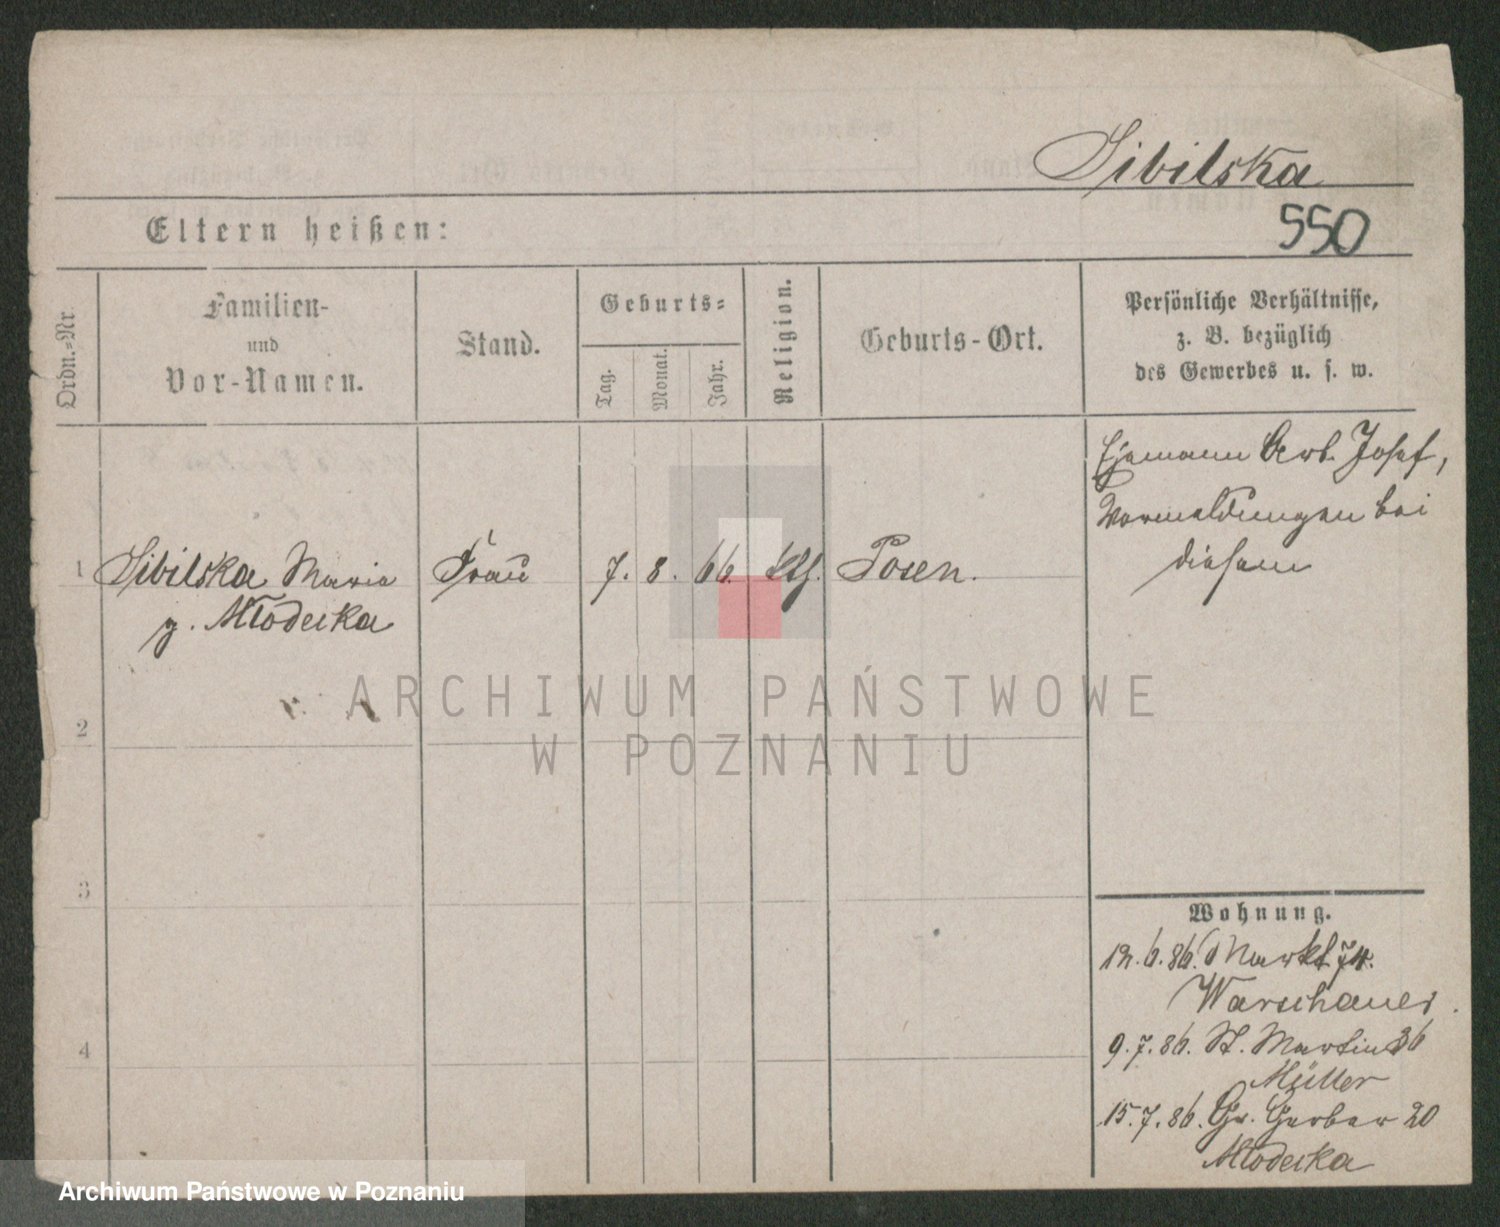 Sibilska
550
Eltern heißen:
Ordn.-Nr.
Familien-
und
Vor-Namen.
Stand.
Geburts-
Tag.
Monat.
Jahr.
Religion.
Geburts-Ort.
Persönliche Verhältnisse,
z. B. bezüglich
des Gewerbes u. s. w.
1
Sibilska Maria
g. Młodecka
Frau
7. 8. 66.
kth.
Posen.
Ehemann Arb. Josef,
Vormeldungen bei
diesem
2
3
4
Wohnung.
12.6.86. Markt 74.
Warschauer.
9.7.86. St. Martin 36
Müller
15.7.86. Gr. Gerber 20
Młodecka
ARCHIWUM PAŃSTWOWE
W POZNANIU
Archiwum Państwowe w Poznaniu